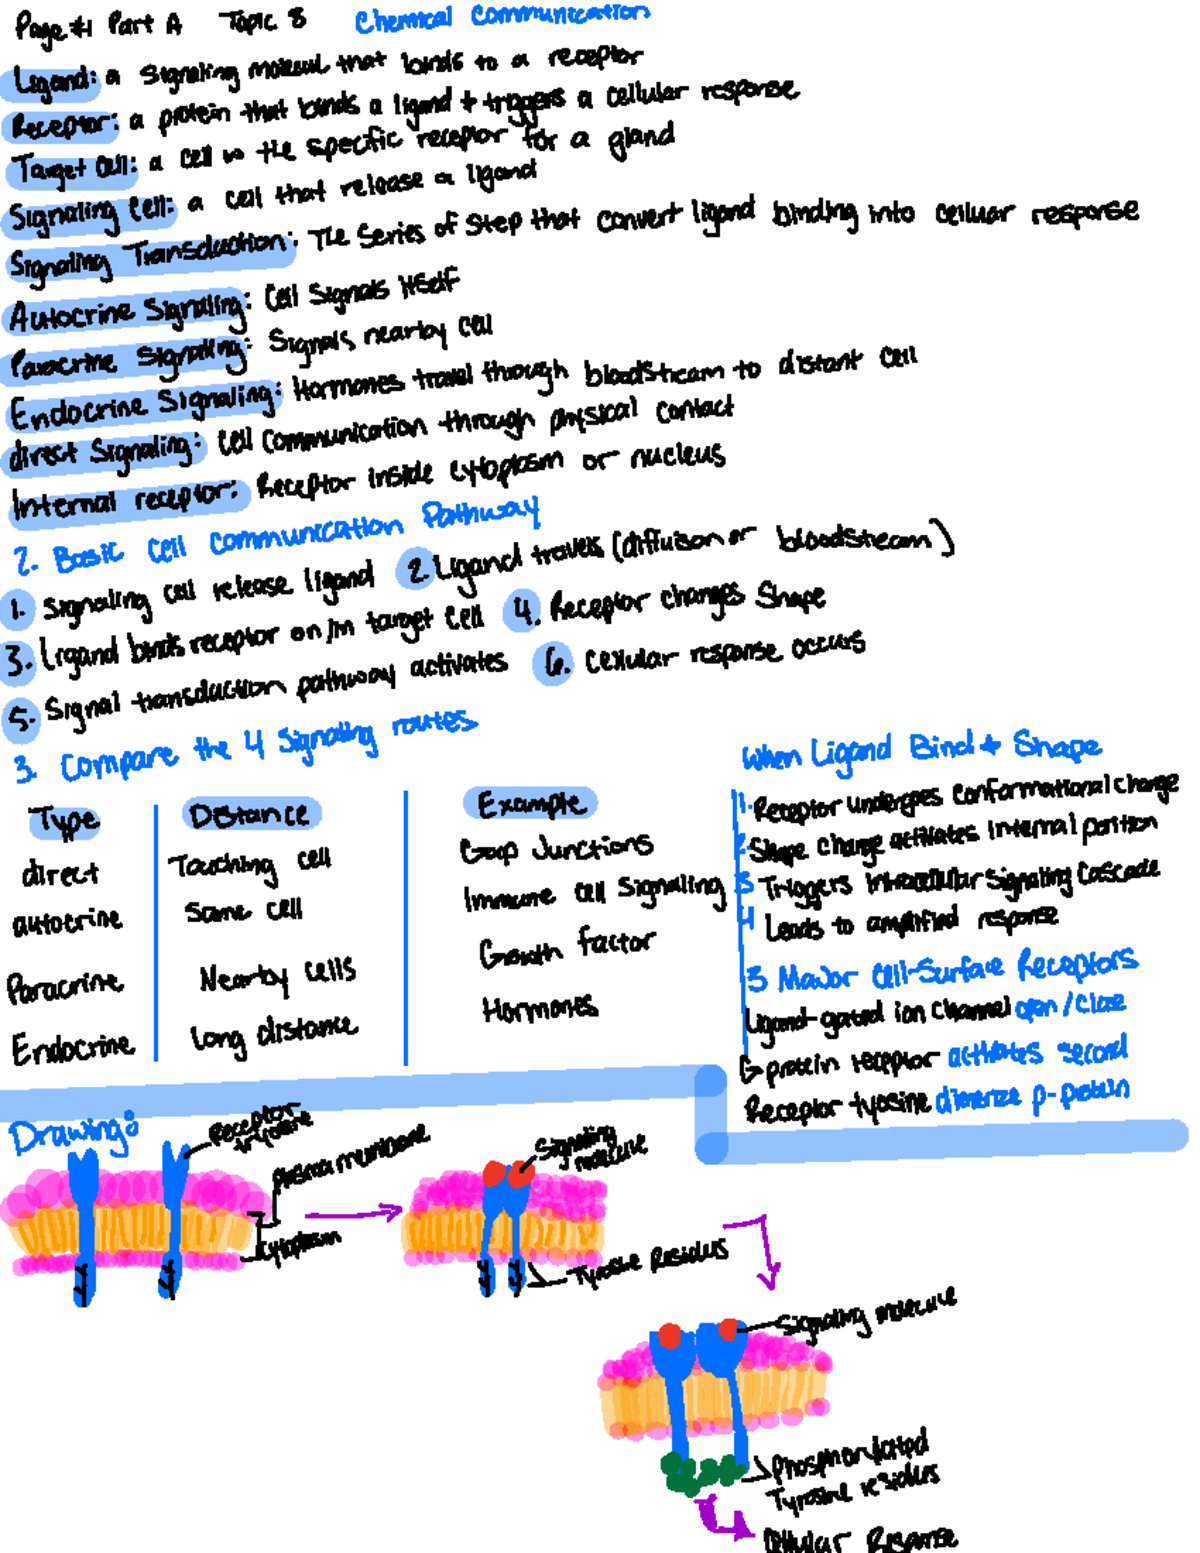 Page #1 Part A Topic 8 Chemical Communication
Ligand: a signaling molecul that binds to a receptor
Receptor: a protein that binds a ligand + triggers a cellular response
Target cell: a cell w the specific receptor for a gland
Signaling Cell: a cell that release a ligand
Signaling Transduction: The series of step that convert ligand binding into celluar response
Autocrine Signaling: Cell Signals itself
Paracrine Signaling: Signals nearby cell
Endocrine Signaling: Hormones travel through bloodstream to distant cell
direct Signaling: Cell communication through physical contact
Internal receptor: Receptor inside cytoplasm or nucleus
2. Basic Cell Communication Pathway
1. Signaling cell release ligand 2. Ligand travels (diffuison or bloodstream)
3. Ligand binds receptor on/in target cell 4. Receptor changes Shape
5. Signal transduction pathway activates 6. Cellular response occurs
3. Compare the 4 Signaling routes
Type Distance Example
direct Touching cell Gap Junctions
autocrine Same cell Immune cell Signaling
Paracrine Nearby cells Growth factor
Endocrine Long distance Hormones
When Ligand Bind + Shape
1. Receptor undergoes conformational change
2. Shape change activates internal portion
3 Triggers intracellular signaling cascade
4 Leads to amplified response
3 Major Cell-Surface Receptors
Ligand-gated ion channel open/close
G-protein receptor activates second
Receptor tyrosine dimerize p-protein
Drawing:
Receptor tyrosine
Plasma membrane
Cytoplasm
Signaling molecule
Tyrosine Residues
Signaling molecule
Phosphorylated
Tyrosine residues
Cellular Response